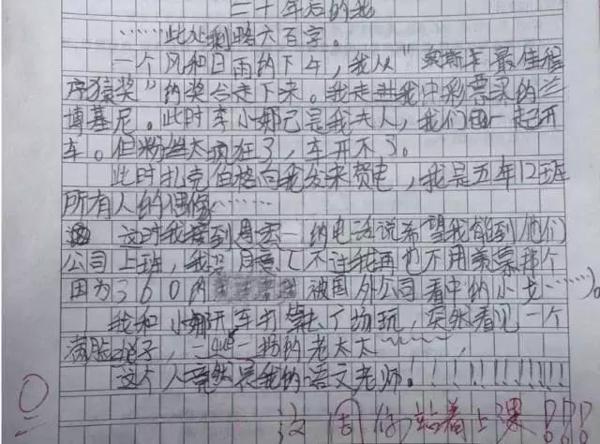 二十年后的我
……此处剩略六百字。
一个风和日雨的下午，我从“奥斯卡最佳程
序猿奖”的奖台走下来。我走进我中彩票买的兰
博基尼。此时李小娜已是我夫人，我们一起开
车。但粉丝太疯狂了，车开不了。
此时扎克伯格向我发来贺电，我是五年12班
所有人的偶像……
这时我接到 的电话说希望我能到他们
公司上班，我 不过我再也不用羡慕那个
因为360内 被国外公司看中的小龙……)。
我和小娜开车去 广场玩，突然看见一个
满脸 子， 的老太太~~~~~，
这个人竟然是我的语文老师！！！！！！！！！！
0
这周你站着上课！？！